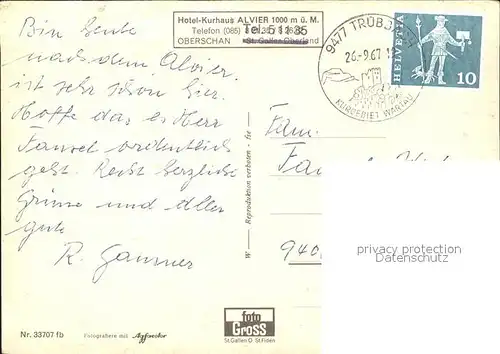 Hotel-Kurhaus ALVIER 1000 m ü. M.
Telefon (085)
Tel. 5 11 35
OBERSCHAN St. Galler Oberland
9477 TRÜBBACH
26.-9.67
KURGEBIET WARTAU
HELVETIA
10
Bin heute
nach dem Alvier.
ist sehr schön hier.
Hoffe das es Herr
ordentlich
geht. Recht herzliche
Grüsse und alles
gute
R. Gamner
Fam.
940
W — Reproduktion verboten - für —
privacy protection
www.ansichtskartenversand.com
foto
Gross
St.Gallen O. St.Fiden
Nr. 33707 fb
Fotografiere mit Agfacolor